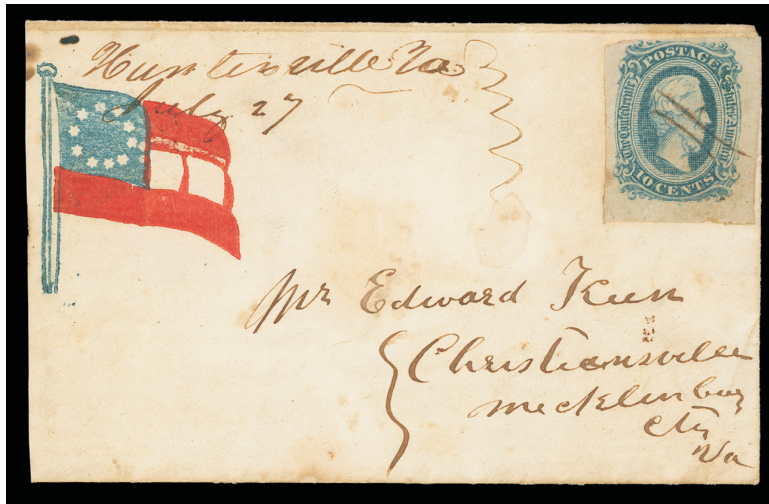 Huntersville Va
July 27
POSTAGE
The Confederate States of America
10 CENTS
Mr Edward Keen
Christiansville
Mecklenburg
Cty
Va